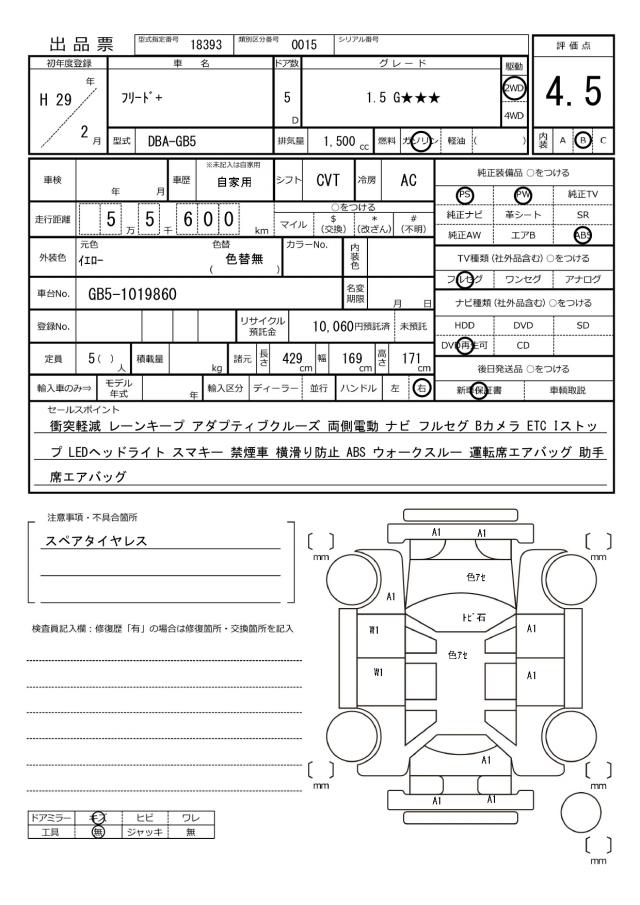 出品票
型式指定番号 18393 類別区分番号 0015 シリアル番号
評価点
4.5
内装 A B C
初年度登録 車名 ドア数 グレード 駆動
H 29 年 2 月
ﾌﾘｰﾄﾞ+ 5 D 1.5 G★★★ 2WD
4WD
型式 DBA-GB5 排気量 1,500 cc 燃料 ガソリン 軽油 ( )
車検 年 月 車歴 ※未記入は自家用 自家用 シフト CVT 冷房 AC
走行距離 5 万 5 千 6 0 0 km
○をつける
マイル $(交換) *(改ざん) #(不明)
外装色 元色 ｲｴﾛｰ 色替 ( 色替無 ) カラーNo. 内装色
車台No. GB5-1019860 名変期限 月 日
登録No. リサイクル預託金 10,060円預託済 未預託
定員 5( ) 人 積載量 kg 諸元 長さ 429 cm 幅 169 cm 高さ 171 cm
輸入車のみ⇒ モデル年式 年 輸入区分 ディーラー 並行 ハンドル 左 右
純正装備品 ○をつける
PS PW 純正TV
純正ナビ 革シート SR
純正AW エアB ABS
TV種類 (社外品含む) ○をつける
フルセグ ワンセグ アナログ
ナビ種類 (社外品含む) ○をつける
HDD DVD SD
DVD再生可 CD
後日発送品 ○をつける
新車保証書 車輌取説
セールスポイント
衝突軽減 レーンキープ アダプティブクルーズ 両側電動 ナビ フルセグ Bカメラ ETC Iストッ
プ LEDヘッドライト スマキー 禁煙車 横滑り防止 ABS ウォークスルー 運転席エアバッグ 助手
席エアバッグ
注意事項・不具合箇所
スペアタイヤレス
検査員記入欄：修復歴「有」の場合は修復箇所・交換箇所を記入
ドアミラー キズ ヒビ ワレ
工具 無 ジャッキ 無
A1 A1
mm mm
色ｱｾ
A1
ﾄﾋﾞ石
W1 A1
色ｱｾ
W1 A1
A1
mm mm
A1 A1
mm